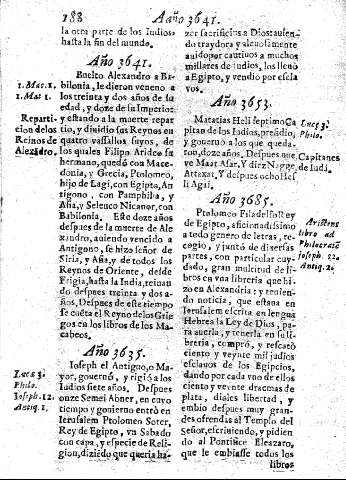 188
Año 3641.
la otra parte de los Iudios
hasta la fin del mundo.
Año 3641.
1. Mac. 1.
1. Mat 1.
Buelto Alexandro a Ba-
bilonia, le dieron veneno a
los treinta y dos años de su
edad, y doze de su Imperio:
Reparti-
cion de los
Reinos de
Alexãdro.
y estando a la muerte repar
tio, y diuidio sus Reynos en
quatro vassallos suyos, de
los quales Filipo Arideo su
hermano, quedó con Mace-
donia, y Grecia, Ptolomeo,
hijo de Lagi, con Egipto, An
tigono, con Pamphilia, y
Asia, y Selenco Nicanor, con
Babilonia. Este doze años
despues de la muerte de Ale
xandro, auiendo vencido a
Antigono, se hizo señor de
Siria, y Asia, y de todos los
Reynos de Oriente, desde
Frigia, hasta la India, reinan
do despues treinta y dos a-
ños, Despues de este tiempo
se cuẽta el Reyno de los Grie
gos en los libros de los Ma-
cabeos.
Año 3635.
Luc. 3.
Philo.
Ioseph. 12.
Antiq. 1.
Ioseph el Antiguo, o Ma
yor, gouernó, y rigió a los
Iudios siete años. Despues
onze Semei Abner, en cuyo
tiempo y gouierno entró en
Ierusalem Ptolomeo Soter,
Rey de Egipto, vn Sabado
con capa, y especie de Reli-
gion, diziẽdo que queria ha-
zer sacrificios a Dios: auien-
do traydora y aleuosamente
auido por cautiuos a muchos
millares de Iudios, los lleuó
a Egipto, y vendio por escla
vos.
Año 3653.
Matatias Heli septimo Ca
pitan de los Iudios, presidio,
y gouernó a los que queda-
ron, doze años, Despues nue
ve Maat Mar, Y diez Nagge
Attaxat, Y despues ocho Hes
li Agai.
Luc. 3.
Philo.
Capitanes
de Iudá.
Año 3685.
Ptolomeo Filadelfo Rey
de Egipto, aficionadissimo
a todo genero de letras, re-
cogio, y juntó de diversas
partes, con particular cuy-
dado, gran multitud de li-
bros en vna libreria que hi-
zo en Alexandria: y tenien-
do noticia, que estaua en
Ierusalem escrita en lengua
Hebrea la Ley de Dios, pa-
ra auerla, y tenerla en su li-
breria, compró, y rescató
ciento y veynte mil judios
esclauos de los Egipcios,
dando por cada vno de ellos
ciento y veynte dracmas de
plata, diales libertad, y
embio despues muy gran-
des ofrendas al Templo del
Señor, escriuiendo, y pidien
do al Pontifice Eleazaro,
que le embiasse todos los
libros
Aristeas
libro ad
Philocratẽ
Ioseph. 12.
Antiq. 2.